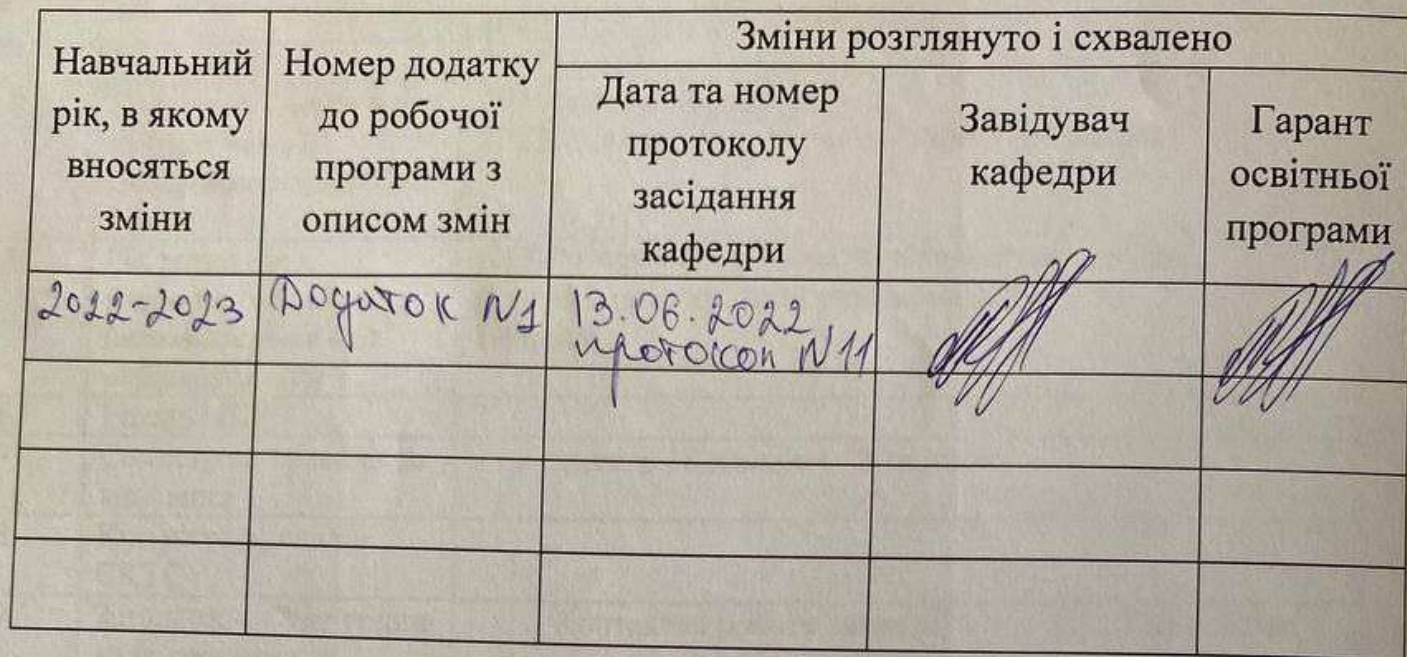 Навчальний
рік, в якому
вносяться
зміни
Номер додатку
до робочої
програми з
описом змін
Зміни розглянуто і схвалено
Дата та номер
протоколу
засідання
кафедри
Завідувач
кафедри
Гарант
освітньої
програми
2022-2023
Додаток N1
13.06.2022,
протокол N11